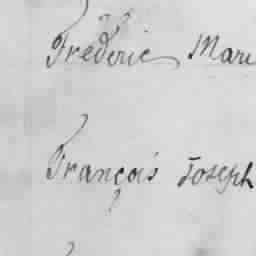 Fréderic Mari
François Joseph